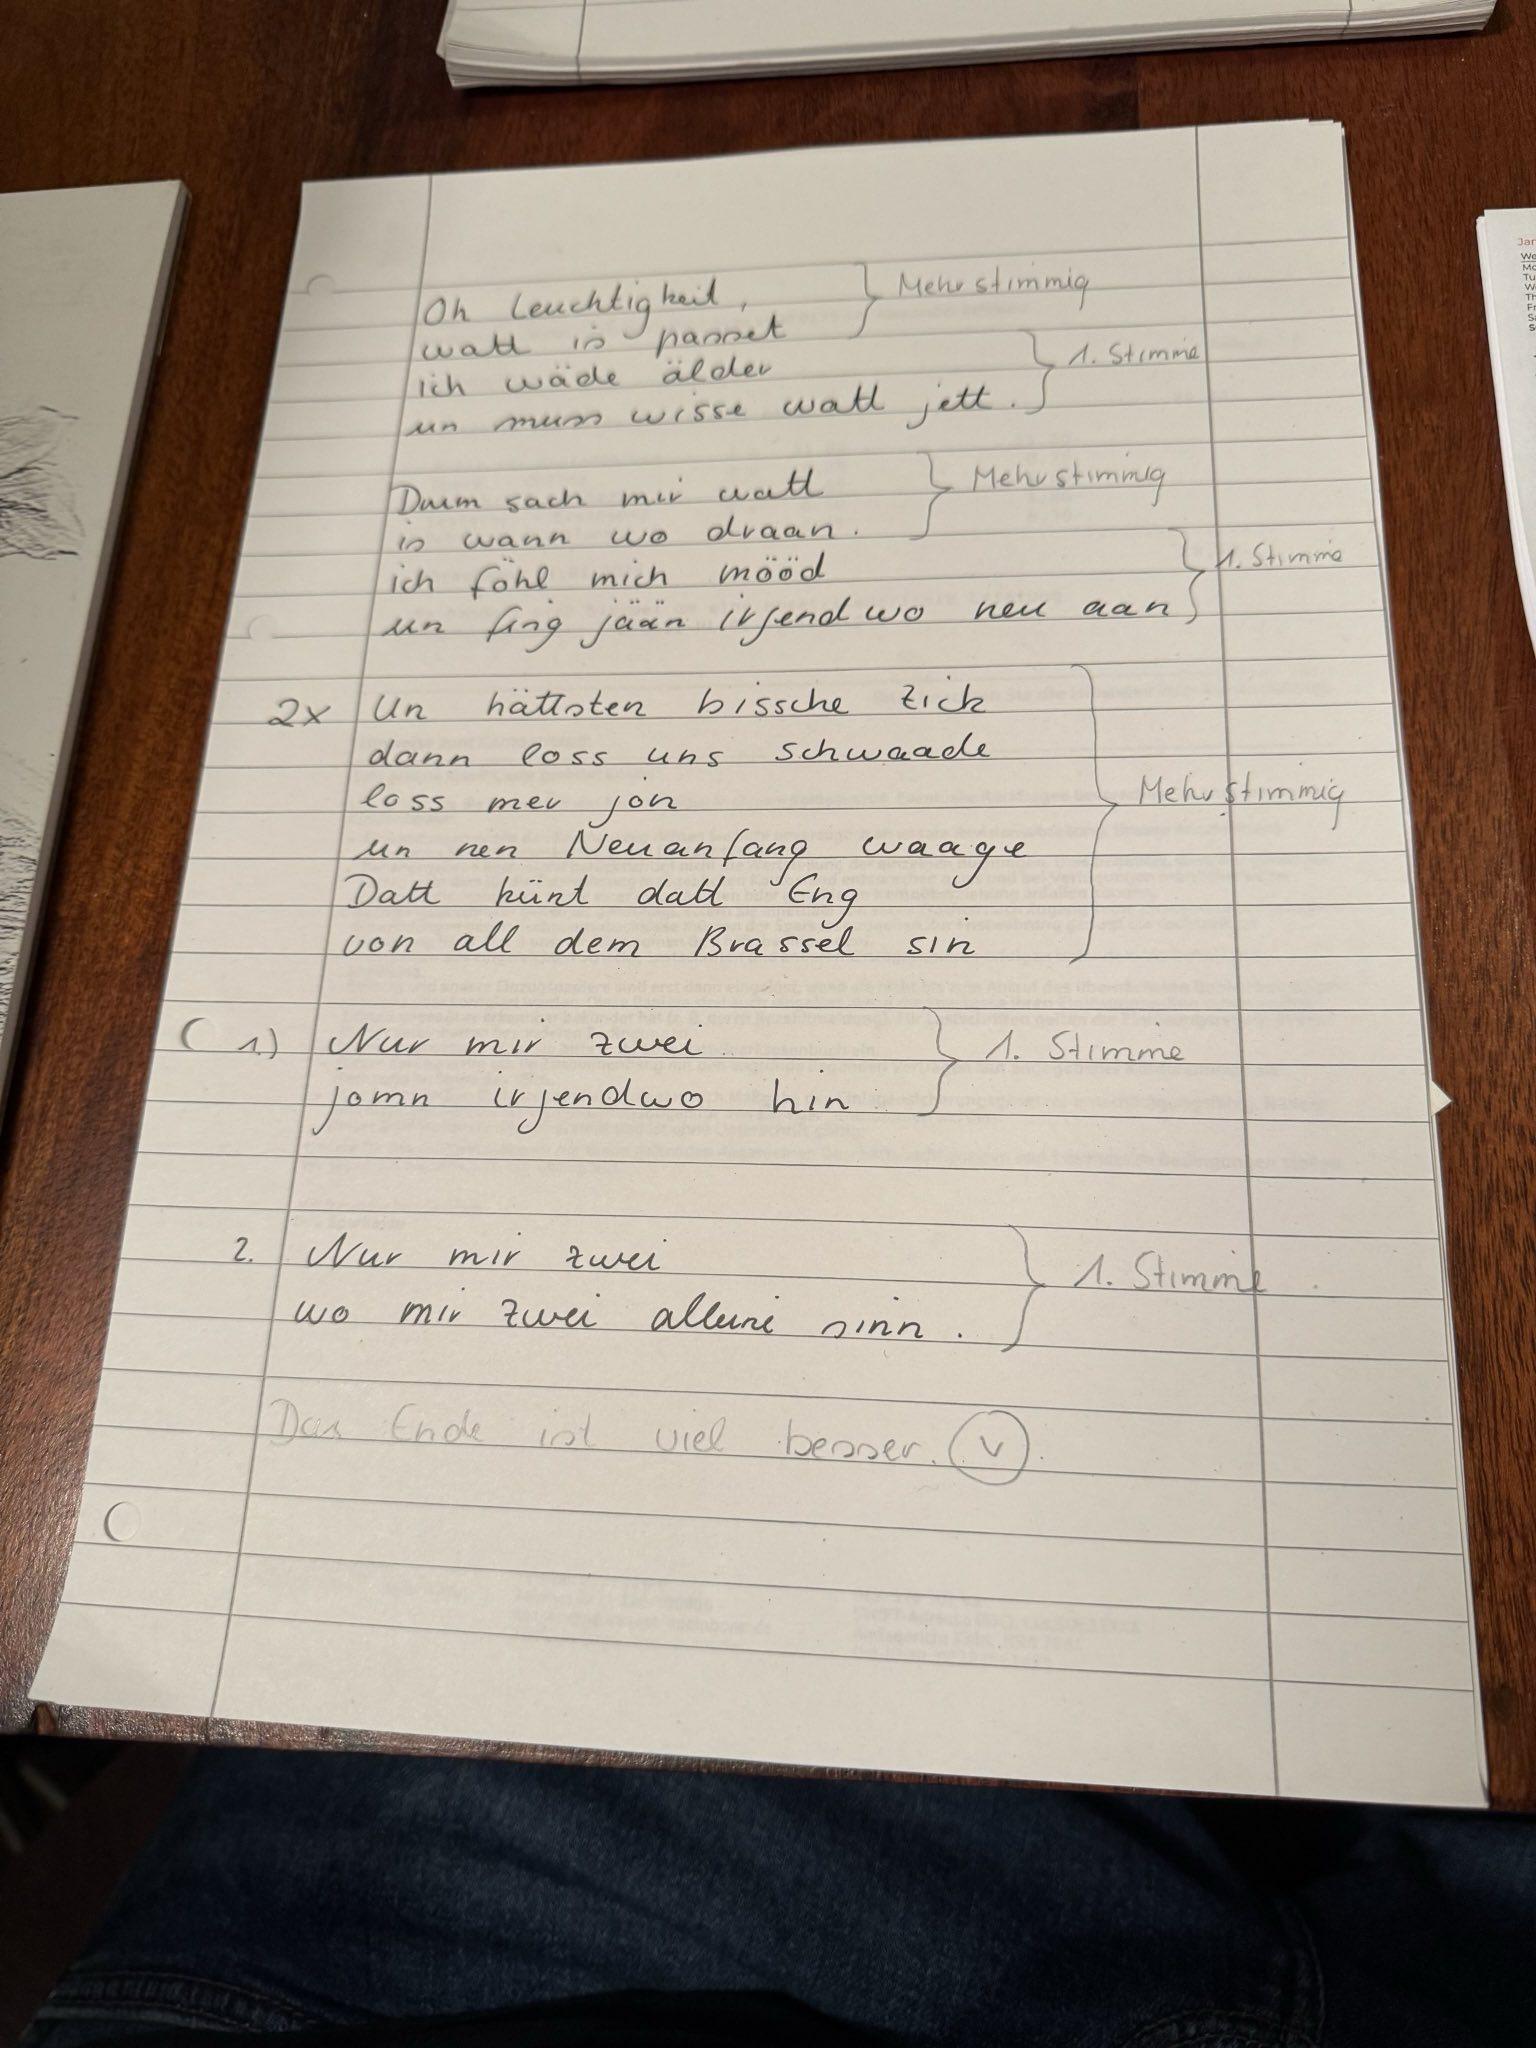 Oh Leuchtigkeit, Mehrstimmig
watt is passet
ich wäde älder 1. Stimme
un muss wisse watt jett.
Dum sach mir watt Mehrstimmig
is wann wo draan.
ich föhl mich mööd 1. Stimme
un fing jään irjendwo neu aan
2x Un hättsten bissche Zick
dann loss uns schwaade
loss mer jon Mehrstimmig
un nen Neuanfang waage
Datt künt datt Eng
von all dem Brassel sin
1.) Nur mir zwei 1. Stimme
jomn irjendwo hin
2. Nur mir zwei 1. Stimme
wo mir zwei alleine sinn.
Das Ende ist viel besser. V
Jan